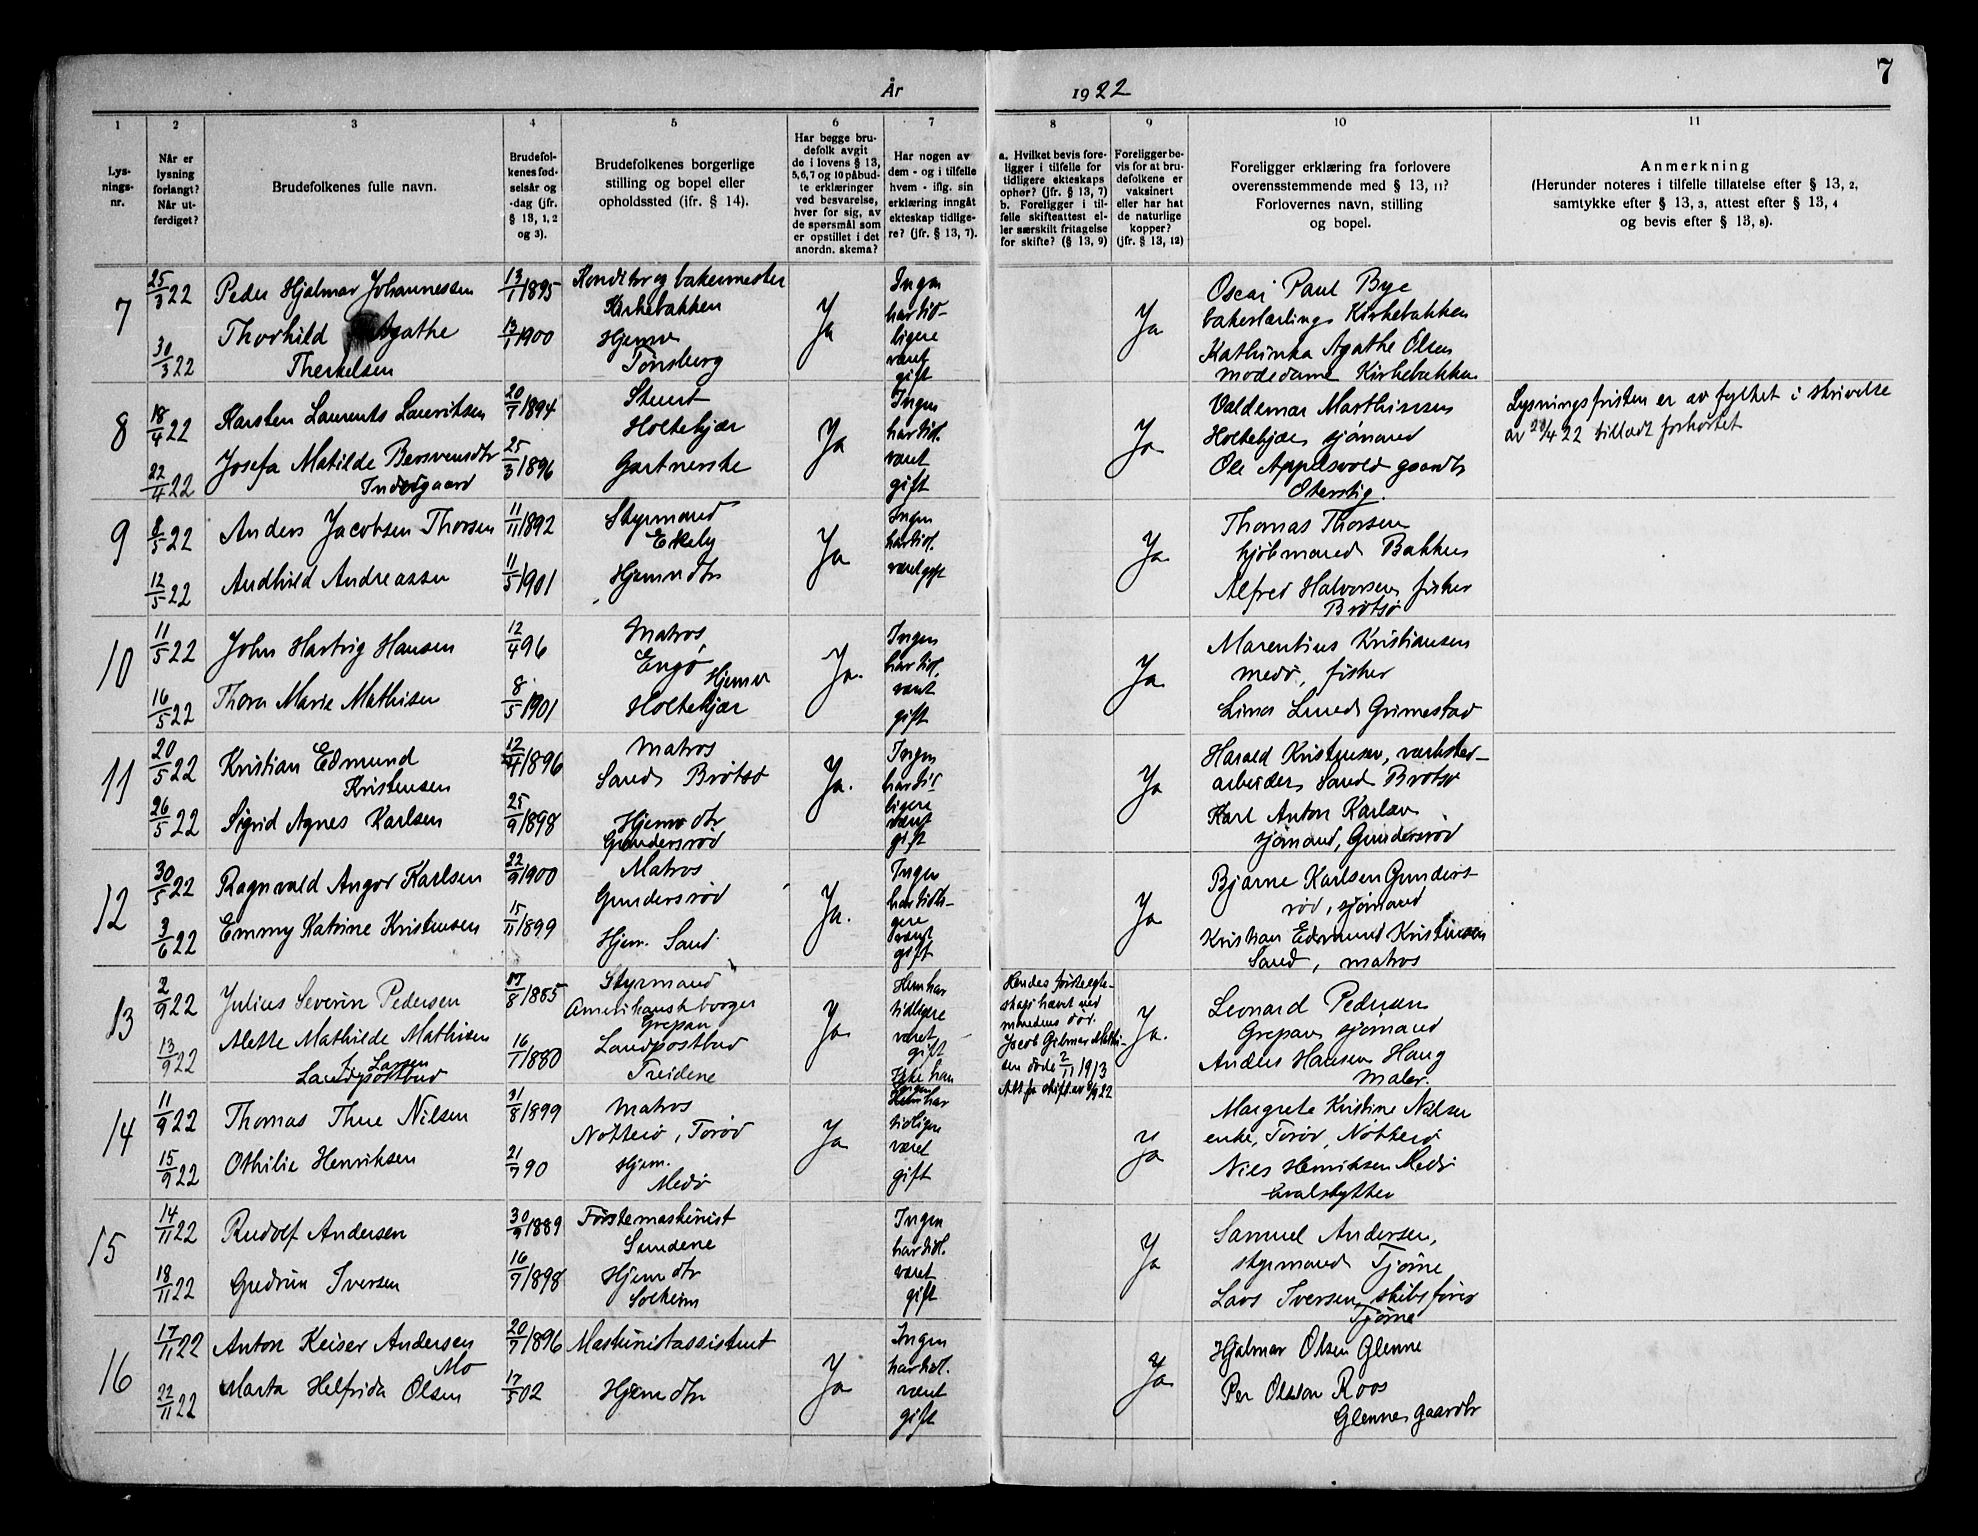 7
År 1922
1 2 3 4 5 6 7 8 9 10 11
Lys-
nings-
nr.
Når er
lysning
forlangt?
Når ut-
ferdiget?
Brudefolkenes fulle navn.
Brudefol-
kenes fød-
selsår og
-dag (jfr.
§ 13, 1, 2
og 3).
Brudefolkenes borgerlige
stilling og bopel eller
opholdssted (jfr. § 14).
Har begge bru-
defolk avgit
de i lovens § 13,
5, 6, 7 og 10 påbud-
te erklæringer
ved besvarelse,
hver for sig, av
de spørsmål som
er opstillet i det
anordn. skema?
Har nogen av
dem - og i tilfelle
hvem - iflg. sin
erklæring inngått
ekteskap tidlige-
re? (jfr. § 13, 7).
a. Hvilket bevis fore-
ligger i tilfelle for
tidligere ekteskaps
ophør? (jfr. § 13, 7)
b. Foreligger i til-
felle skifteattest el-
ler særskilt fritagelse
for skifte? (§ 13, 9)
Foreligger be-
vis for at bru-
defolkene er
vaksinert
eller har hat
de naturlige
kopper?
(jfr. § 13, 12)
Foreligger erklæring fra forlovere
overensstemmende med § 13, 11?
Forlovernes navn, stilling
og bopel.
Anmerkning
(Herunder noteres i tilfelle tillatelse efter § 13, 2,
samtykke efter § 13, 3, attest efter § 13, 4
og bevis efter § 13, 8).
7
25/3 22
30/3 22
Peder Hjalmar Johannessen
Thorhild Agathe
Therkelsen
13/1 1895
13/1 1900
Konditor og bakermester
Kirkebakken
Hjemv
Tønsberg
Ja
Ingen
har tid-
ligere
været
gift
Ja
Oscar Paul Bye
bakerlærling Kirkebakken
Kathinka Agathe Olsen
modedame Kirkebakken
8
18/4 22
22/4 22
Karsten Laurents Lauritsen
Josefa Matilde Bersvendsdtr
Indergaard
20/7 1894
25/3 1896
Stuert
Holtekjær
Gartnerske
Ja
Ingen
har tidl.
været
gift
Ja
Valdemar Marthinsen
Holtekjær sjømand
Ole Appelsvold gaardbr
Oterstig.
Lysningsfristen er av fylket i skrivelse
av 20/4 22 tilladt forkortet
9
8/5 22
12/5 22
Anders Jacobsen Thorsen
Andhild Andreassen
11/11 1892
11/5 1901
Styrmand
Ekely
Hjemv dtr
Ja
Ingen
har tidl.
været gift
Ja
Thomas Thorsen
kjøbmand Bakken
Alfred Halvorsen fisker
Brøtsø
10
11/5 22
16/5 22
John Hartvig Hansen
Thora Marie Mathisen
12/4 96
8/5 1901
Matros
Engø
Hjemv
Holtekjær
Ja.
Ingen
har tidl.
været
gift
Ja
Marentius Kristiansen
Medø, fisker
Lund Grimestad
11
20/5 22
26/5 22
Kristian Edmund
Kristensen
Sigrid Agnes Karlsen
12/4 1896
25/9 1898
Matros
Sand Brøtsø
Hjemv dtr
Gundersrød
Ja.
Ingen
har tid
ligere
været
gift
Ja
Harald Kristensen, verksted-
arbeider Sand Brøtsø
Karl Anton Karlsen
sjømand, Gundersrød
12
30/5 22
3/6 22
Ragnvald Angor Karlsen
Emmy Katrine Kristensen
22/9 1900
15/11 1899
Matros
Gundersrød
Hjem. Sand
Ja.
Ingen
har tidli-
gere
været
gift
Ja
Bjarne Karlsen Gunders-
rød, sjømand
Kristian Edmund Kristensen
Sand, matros
13
2/9 22
13/9 22
Julius Severin Pedersen
Alette Mathilde Mathisen
f. Larsen
Landpostbud
/8 1885
16/1 1880
Styrmand
Amerikansk borger
Grepan
Landpostbud
Treidene
Ja
Hun har
tidligere
været
gift
Ikke han
Hendes første egte-
skap hævet ved
mandens død.
Jacob Gelmar Mathi-
sen døde 2/11 1913
Att. fr skift. av 8/9 22
Ja.
Leonard Pedersen
Grepan, sjømand
Anders Hansen Haug
Maler.
14
11/9 22
15/9 22
Thomas Thue Nilsen
Othilie Henriksen
31/8 1899
21/7 90
Matros
Nøtterø, Torød
Hjem.
Medø
Ja
Ingen
har
tidligere
været
gift
Ja
Margrete Kristine Nilsen
enke, Torød, Nøtterø
Nils Henriksen Medø
hvalskytter
15
14/11 22
18/11 22
Rudolf Andersen
Gudrun Iversen
30/9 1889
16/7 1898
Førstemaskinist
Sundene
Hjemv dtr
Solheim
Ingen
har tidl.
været
gift
Ja
Samuel Andersen,
styrmand Tjøme
Lars Iversen, skibsfører
Tjøme
16
17/11 22
22/11 22
Anton Keiser Andersen
Mo
Marta Helfrida Olsen
20/7 1896
17/5 02
Maskinistassistent
Hjemv dtr
Ja
Ingen
har tidl.
været
gift
Ja
Hjalmar Olsen Glenne
Per Olsson Roos
Glenne, gaardbr